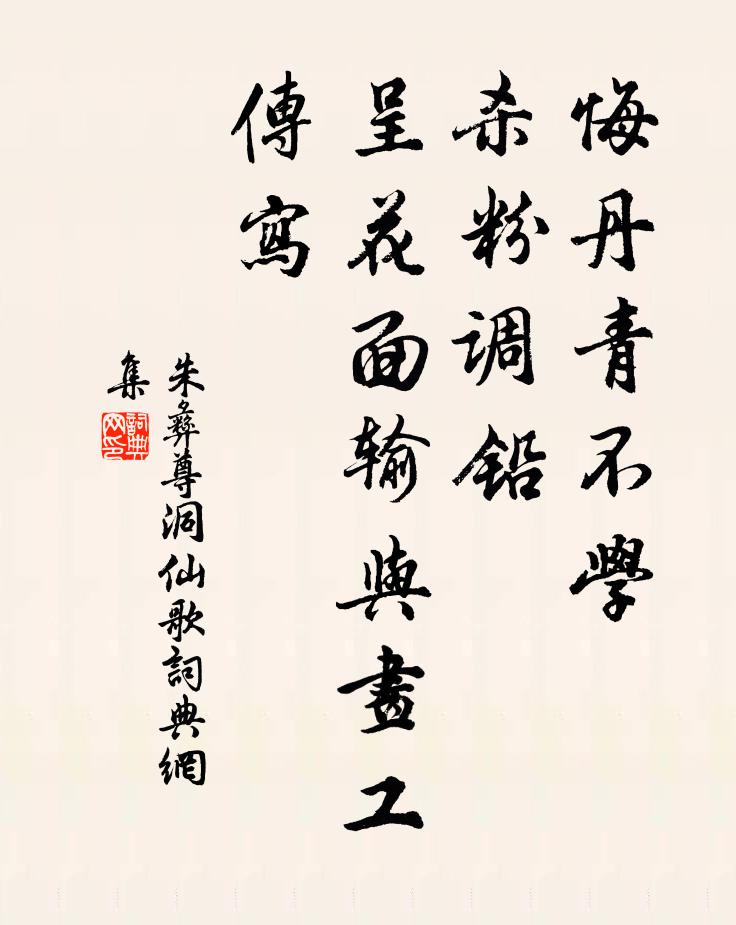 悔丹青不學
杀粉调铅
呈花面输與畫工
傳寫
朱彝尊洞仙歌詞典網
集
詞典網印